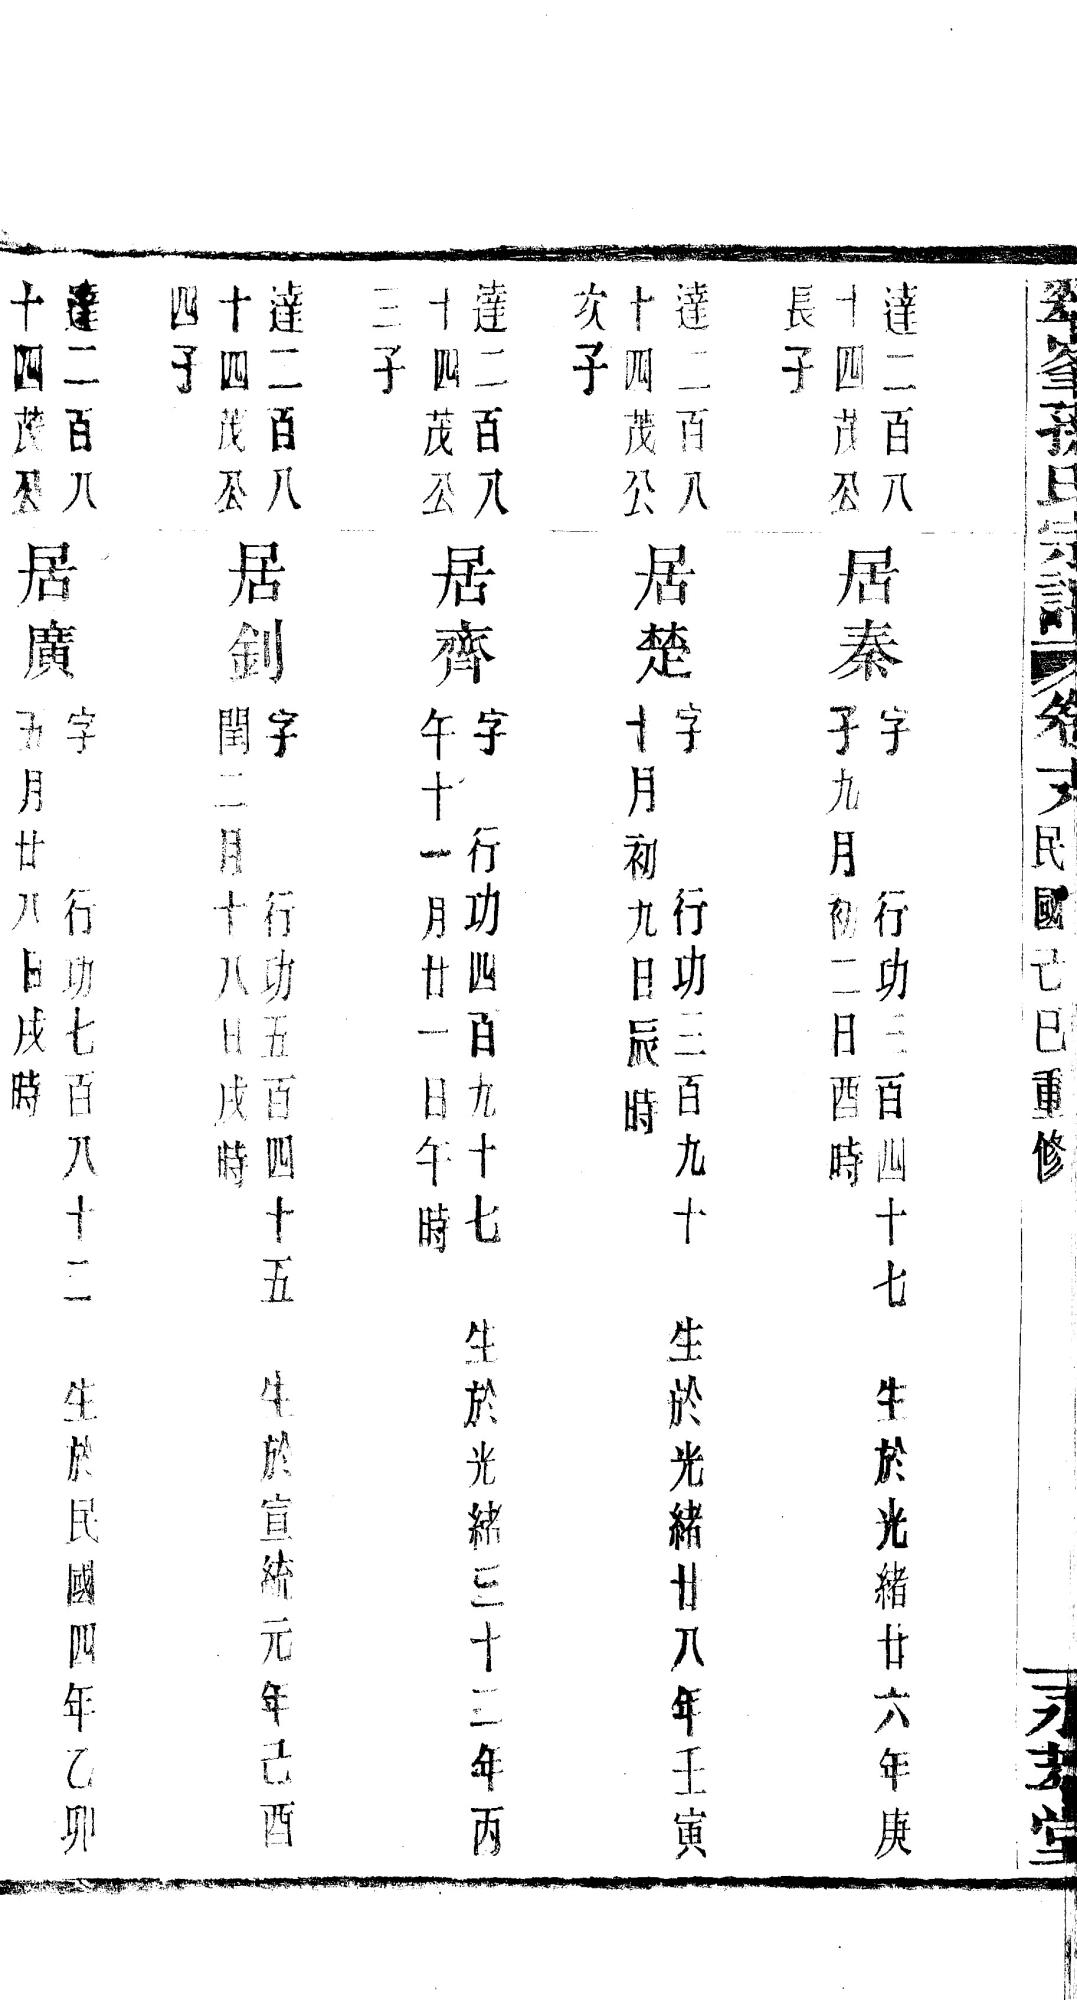 峯孫氏宗譜 卷 民國己巳重修 堂
達二百八
十四茂公
長子
居秦
字 行功三百四十七 生於光緒廿六年庚
子九月初二日酉時
達二百八
十四茂公
次子
居楚
字 行功三百九十 生於光緒廿八年壬寅
十月初九日辰時
達二百八
十四茂公
三子
居齊
字 行功四百九十七 生於光緒三十二年丙
午十一月廿一日午時
達二百八
十四茂公
四子
居釗
字 行功五百四十五 生於宣統元年己酉
閏二月十八日戌時
達二百八
十四茂公
居廣
字 行功七百八十二 生於民國四年乙卯
五月廿八日戌時